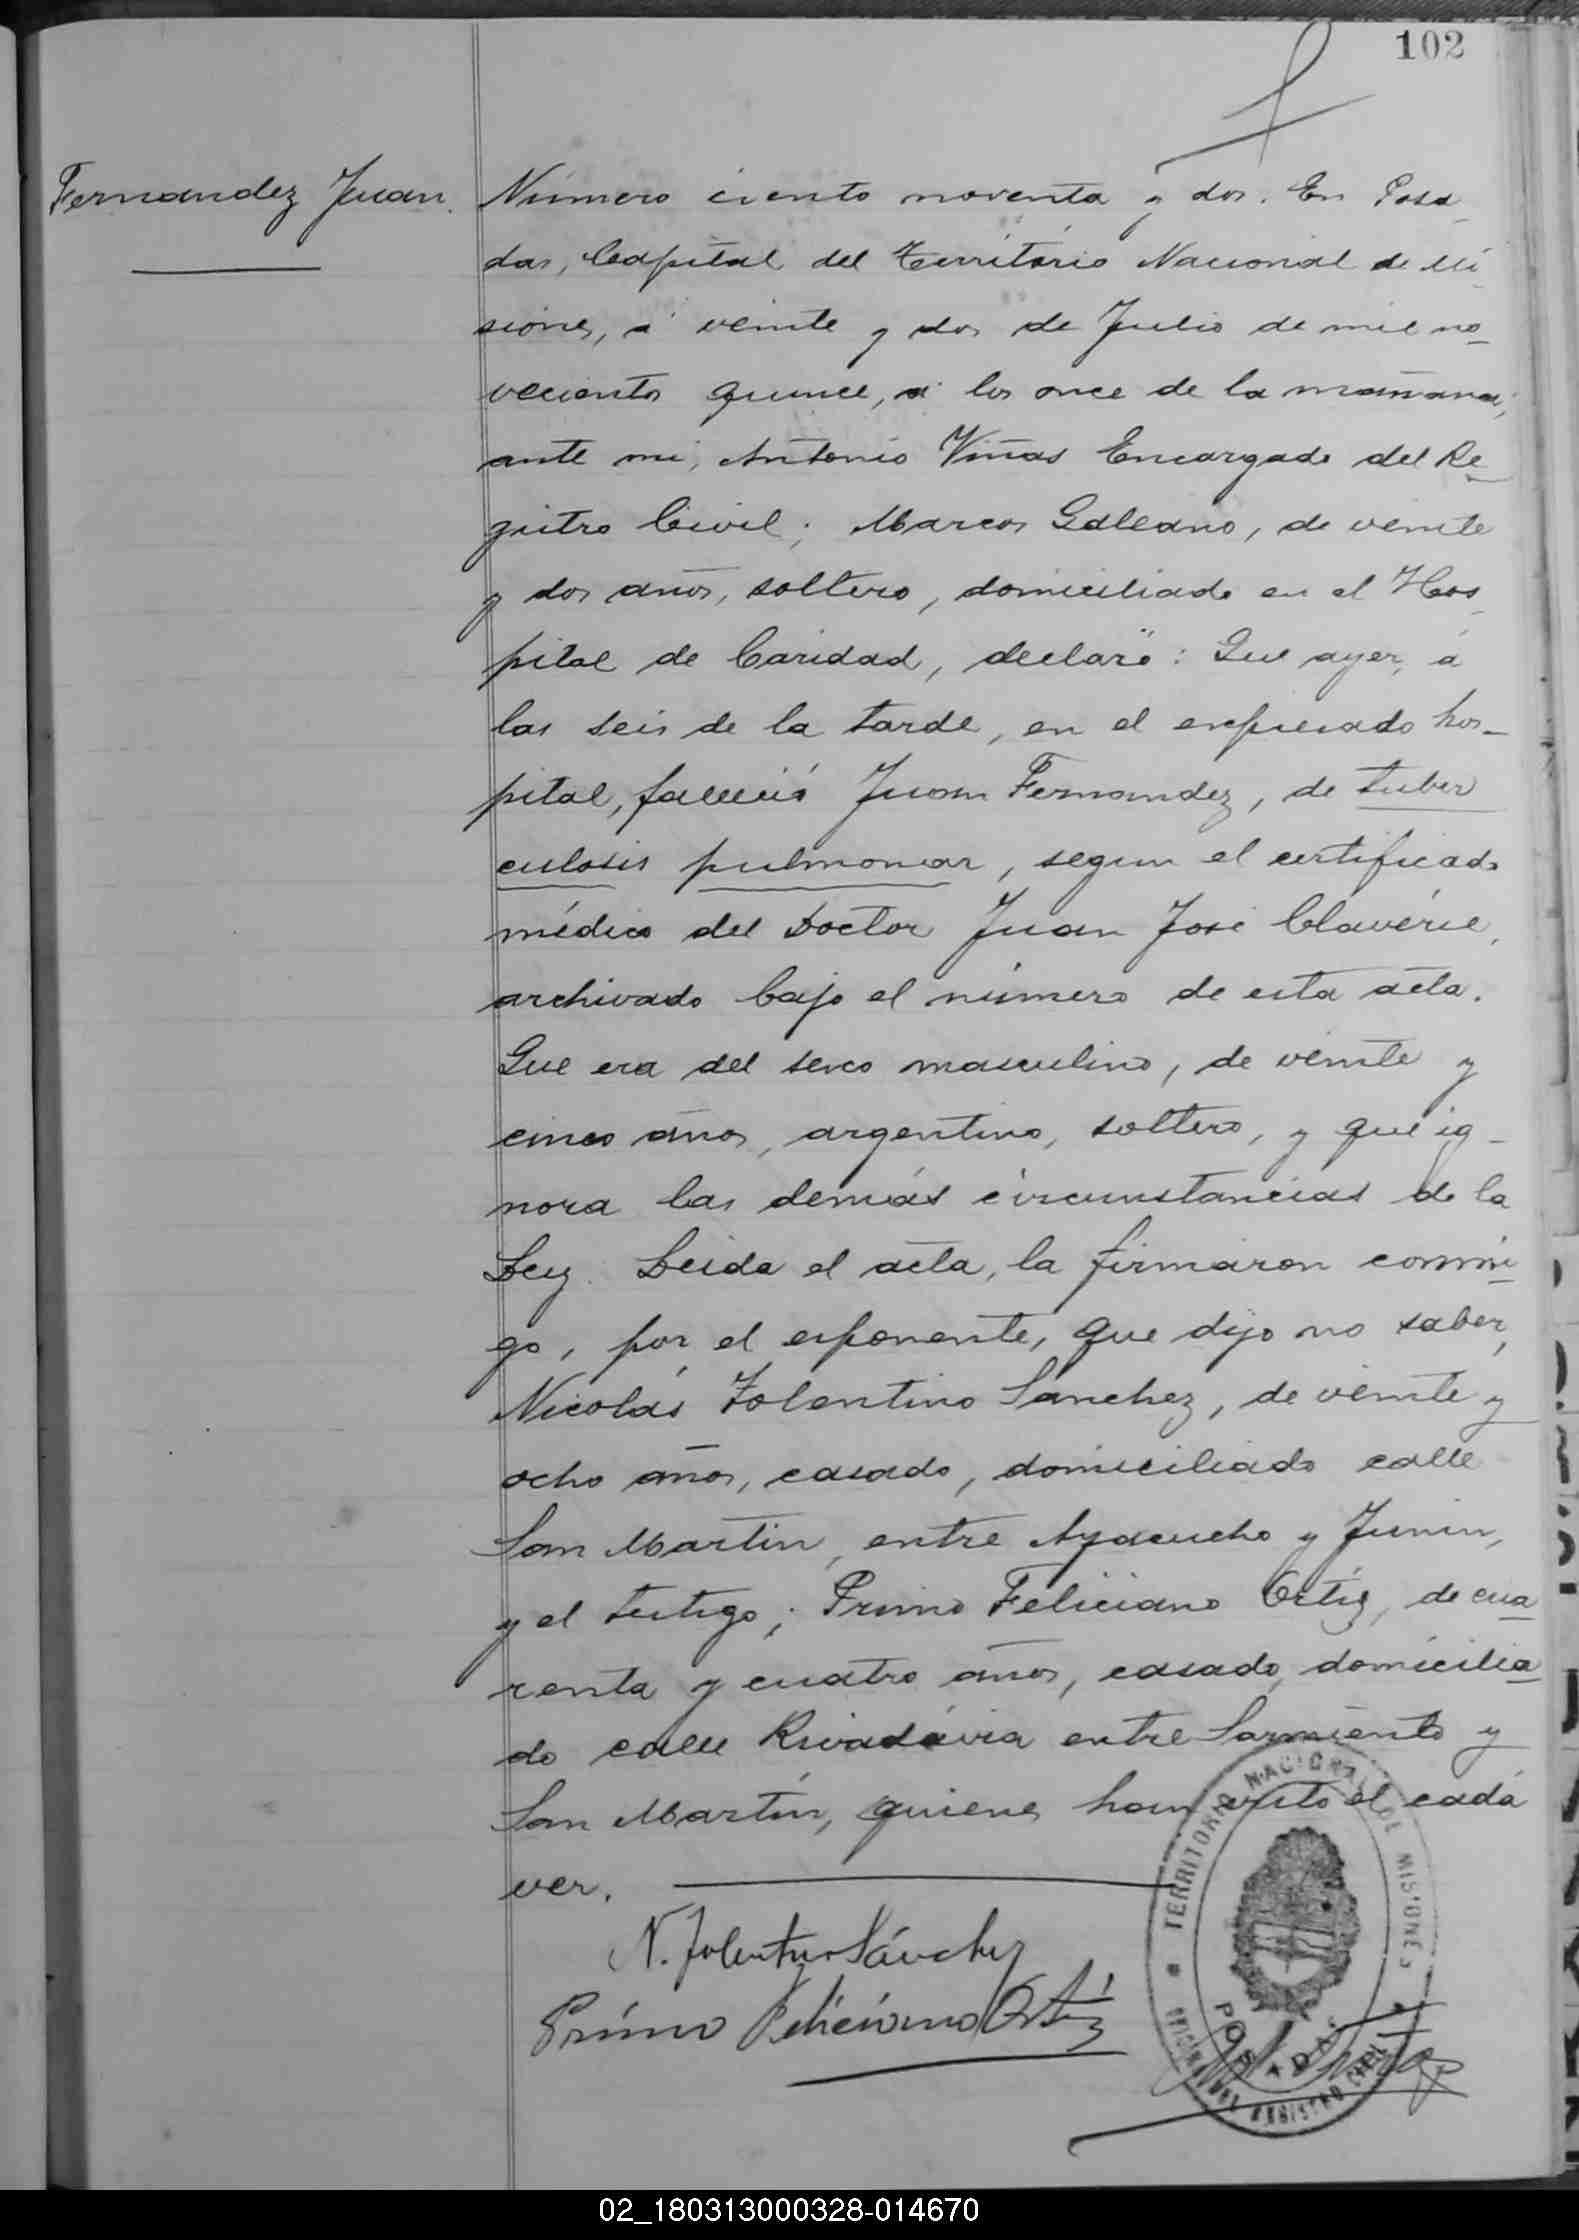 102
Fernandez Juan.
Número ciento noventa y dos. En Posa
das, Capital del Territorio Nacional de Mi
siones, á veinte y dos de Julio de mil no
vecientos quince, á las once de la mañana,
ante mi, Antonio Viñas Encargado del Re
gistro Civil; Marcos Galeano, de veinte
y dos años, soltero, domiciliado en el Hos
pital de Caridad, declaró: Que ayer, á
las seis de la tarde, en el expresado hos
pital, falleció Juan Fernandez, de tuber
culosis pulmonar, segun el certificado
médico del Doctor Juan José Claverie,
archivado bajo el número de esta acta.
Que era del sexo masculino, de veinte y
cinco años, argentino, soltero, y que ig-
nora las demás circunstancias de la
Ley. Leida el acta, la firmaron conmi
go, por el exponente, que dijo no saber,
Nicolás Tolentino Sanchez, de veinte y
ocho años, casado, domiciliado calle
San Martin, entre Ayacucho y Junin,
y el testigo; Primo Feliciano Ortiz, de cua
renta y cuatro años, casado, domicilia
do calle Rivadávia entre Sarmiento y
San Martin, quienes han visto el cadá
ver.
N. Tolentino Sánchez
Primo Feliciano Ortiz
TERRITORIO NACIONAL DE MISIONES
POSADAS
OFICINA DEL REGISTRO CIVIL
02_180313000328-014670